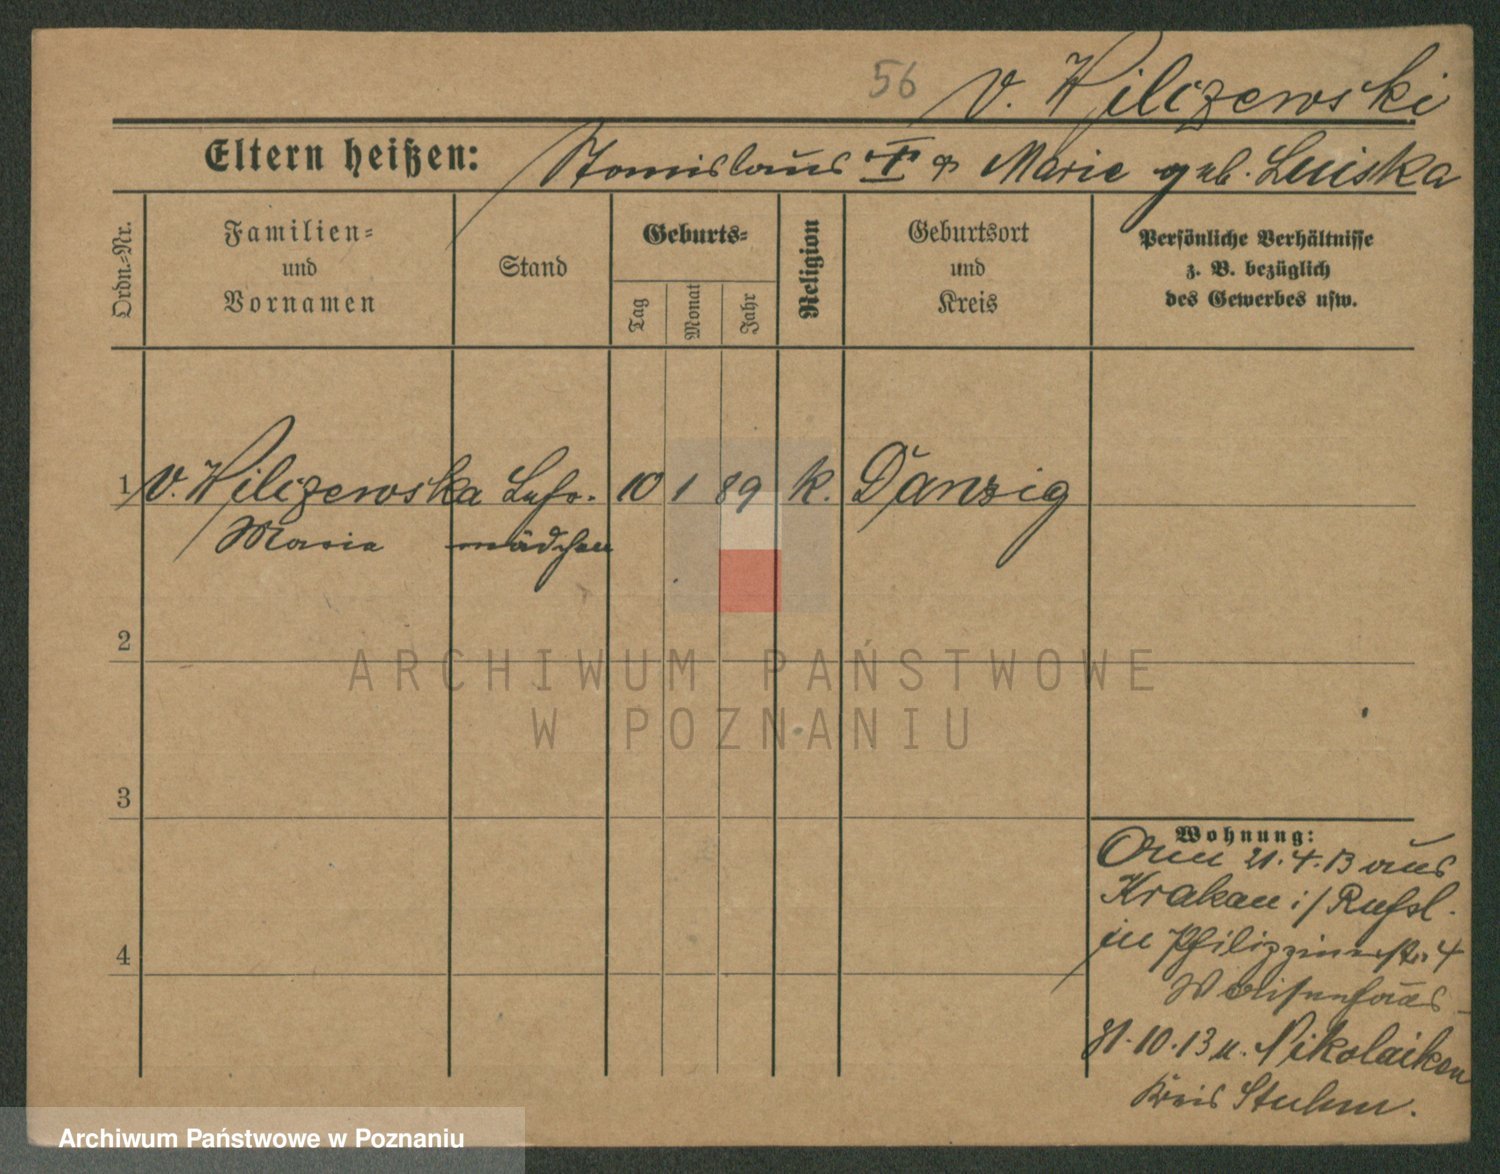 56 v. Wilczewski
Eltern heißen: Stanislaus † & Marie geb. Luiska
Ordn.-Nr.
Familien-
und
Vornamen
Stand
Geburts-
Tag
Monat
Jahr
Religion
Geburtsort
und
Kreis
Persönliche Verhältnisse
z. B. bezüglich
des Gewerbes usw.
1 v. Wilczewska Lehr- 10 1 89 k. Danzig
Maria mädchen
2
ARCHIWUM PAŃSTWOWE
W POZNANIU
3
4
Wohnung:
21.4.13 aus
Krakau i/Rußl.
in Philippinenstr. 4
Waisenhaus
31.10.13 n. Nikolaiken
Kreis Stuhm.
Archiwum Państwowe w Poznaniu